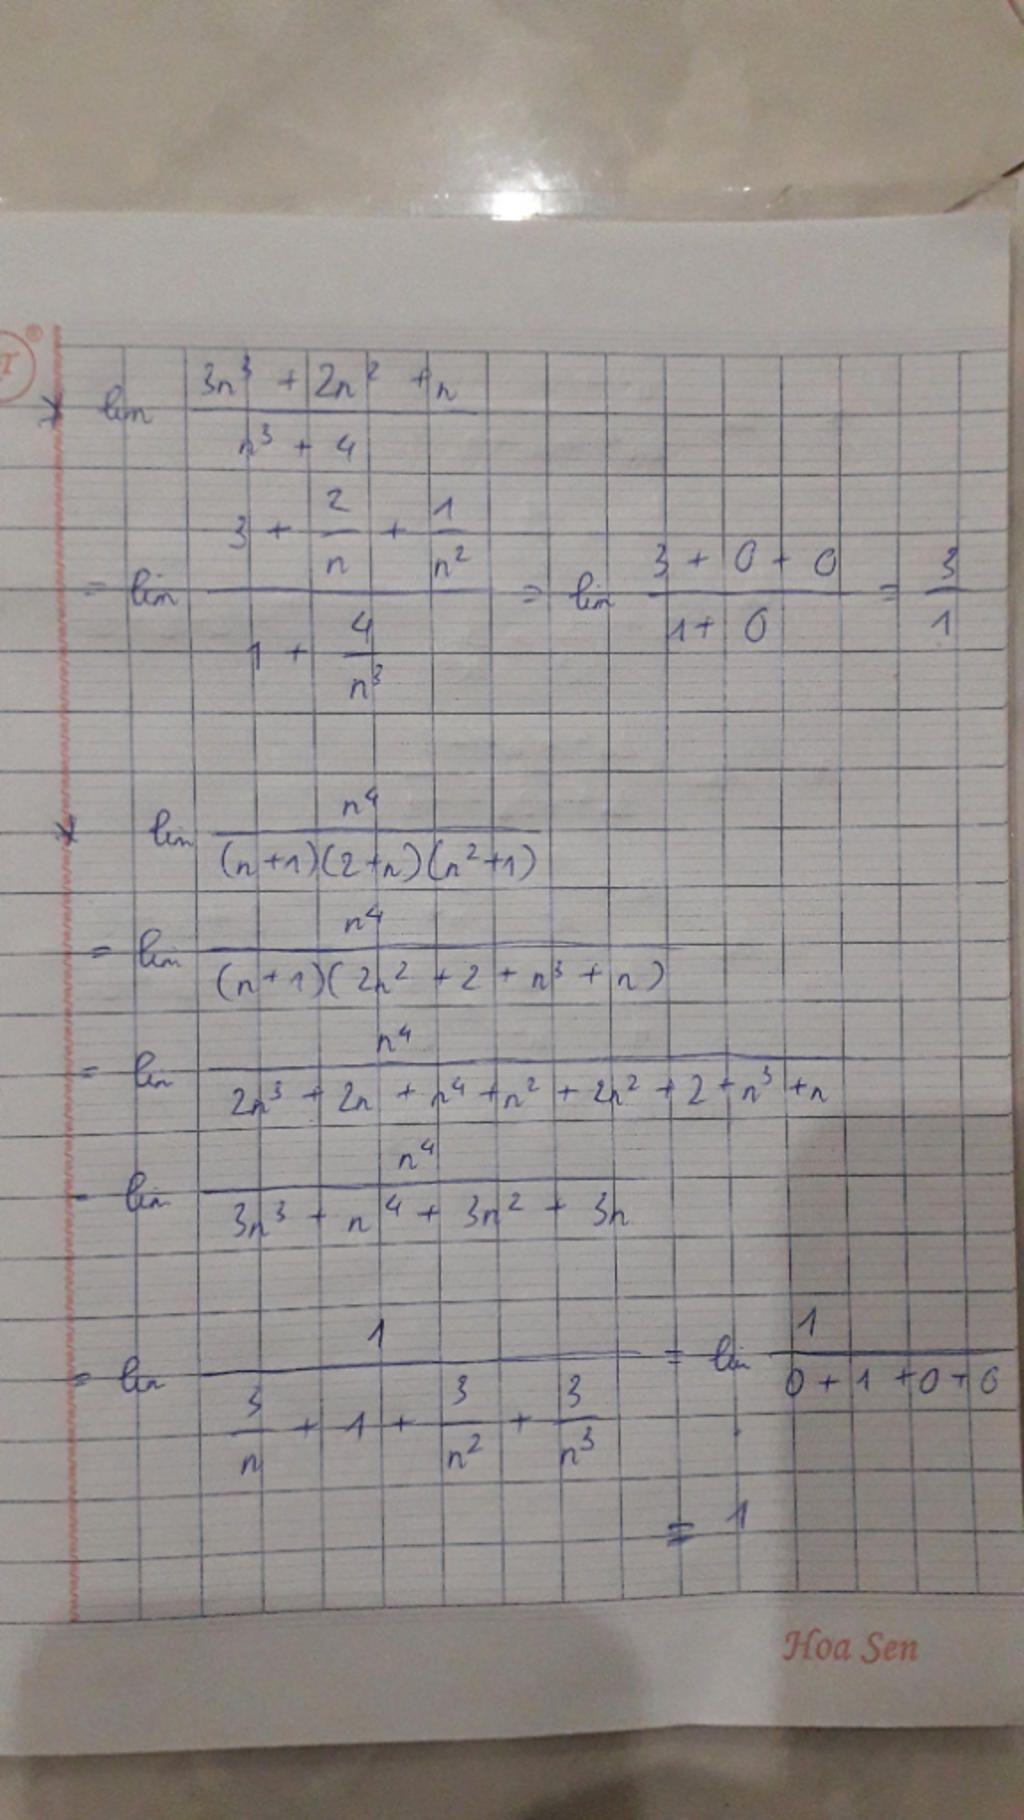 * lim (3n³ + 2n² + n) / (n³ + 4)
= lim (3 + 2/n + 1/n²) / (1 + 4/n³) = lim (3 + 0 + 0) / (1 + 0) = 3/1
* lim n⁴ / (n+1)(2+n)(n²+1)
= lim n⁴ / (n+1)(2n² + 2 + n³ + n)
= lim n⁴ / 2n³ + 2n + n⁴ + n² + 2n² + 2 + n³ + n
= lim n⁴ / 3n³ + n⁴ + 3n² + 3n
= lim 1 / (3/n + 1 + 3/n² + 3/n³) = lim 1 / (0 + 1 + 0 + 0)
= 1
Hoa Sen